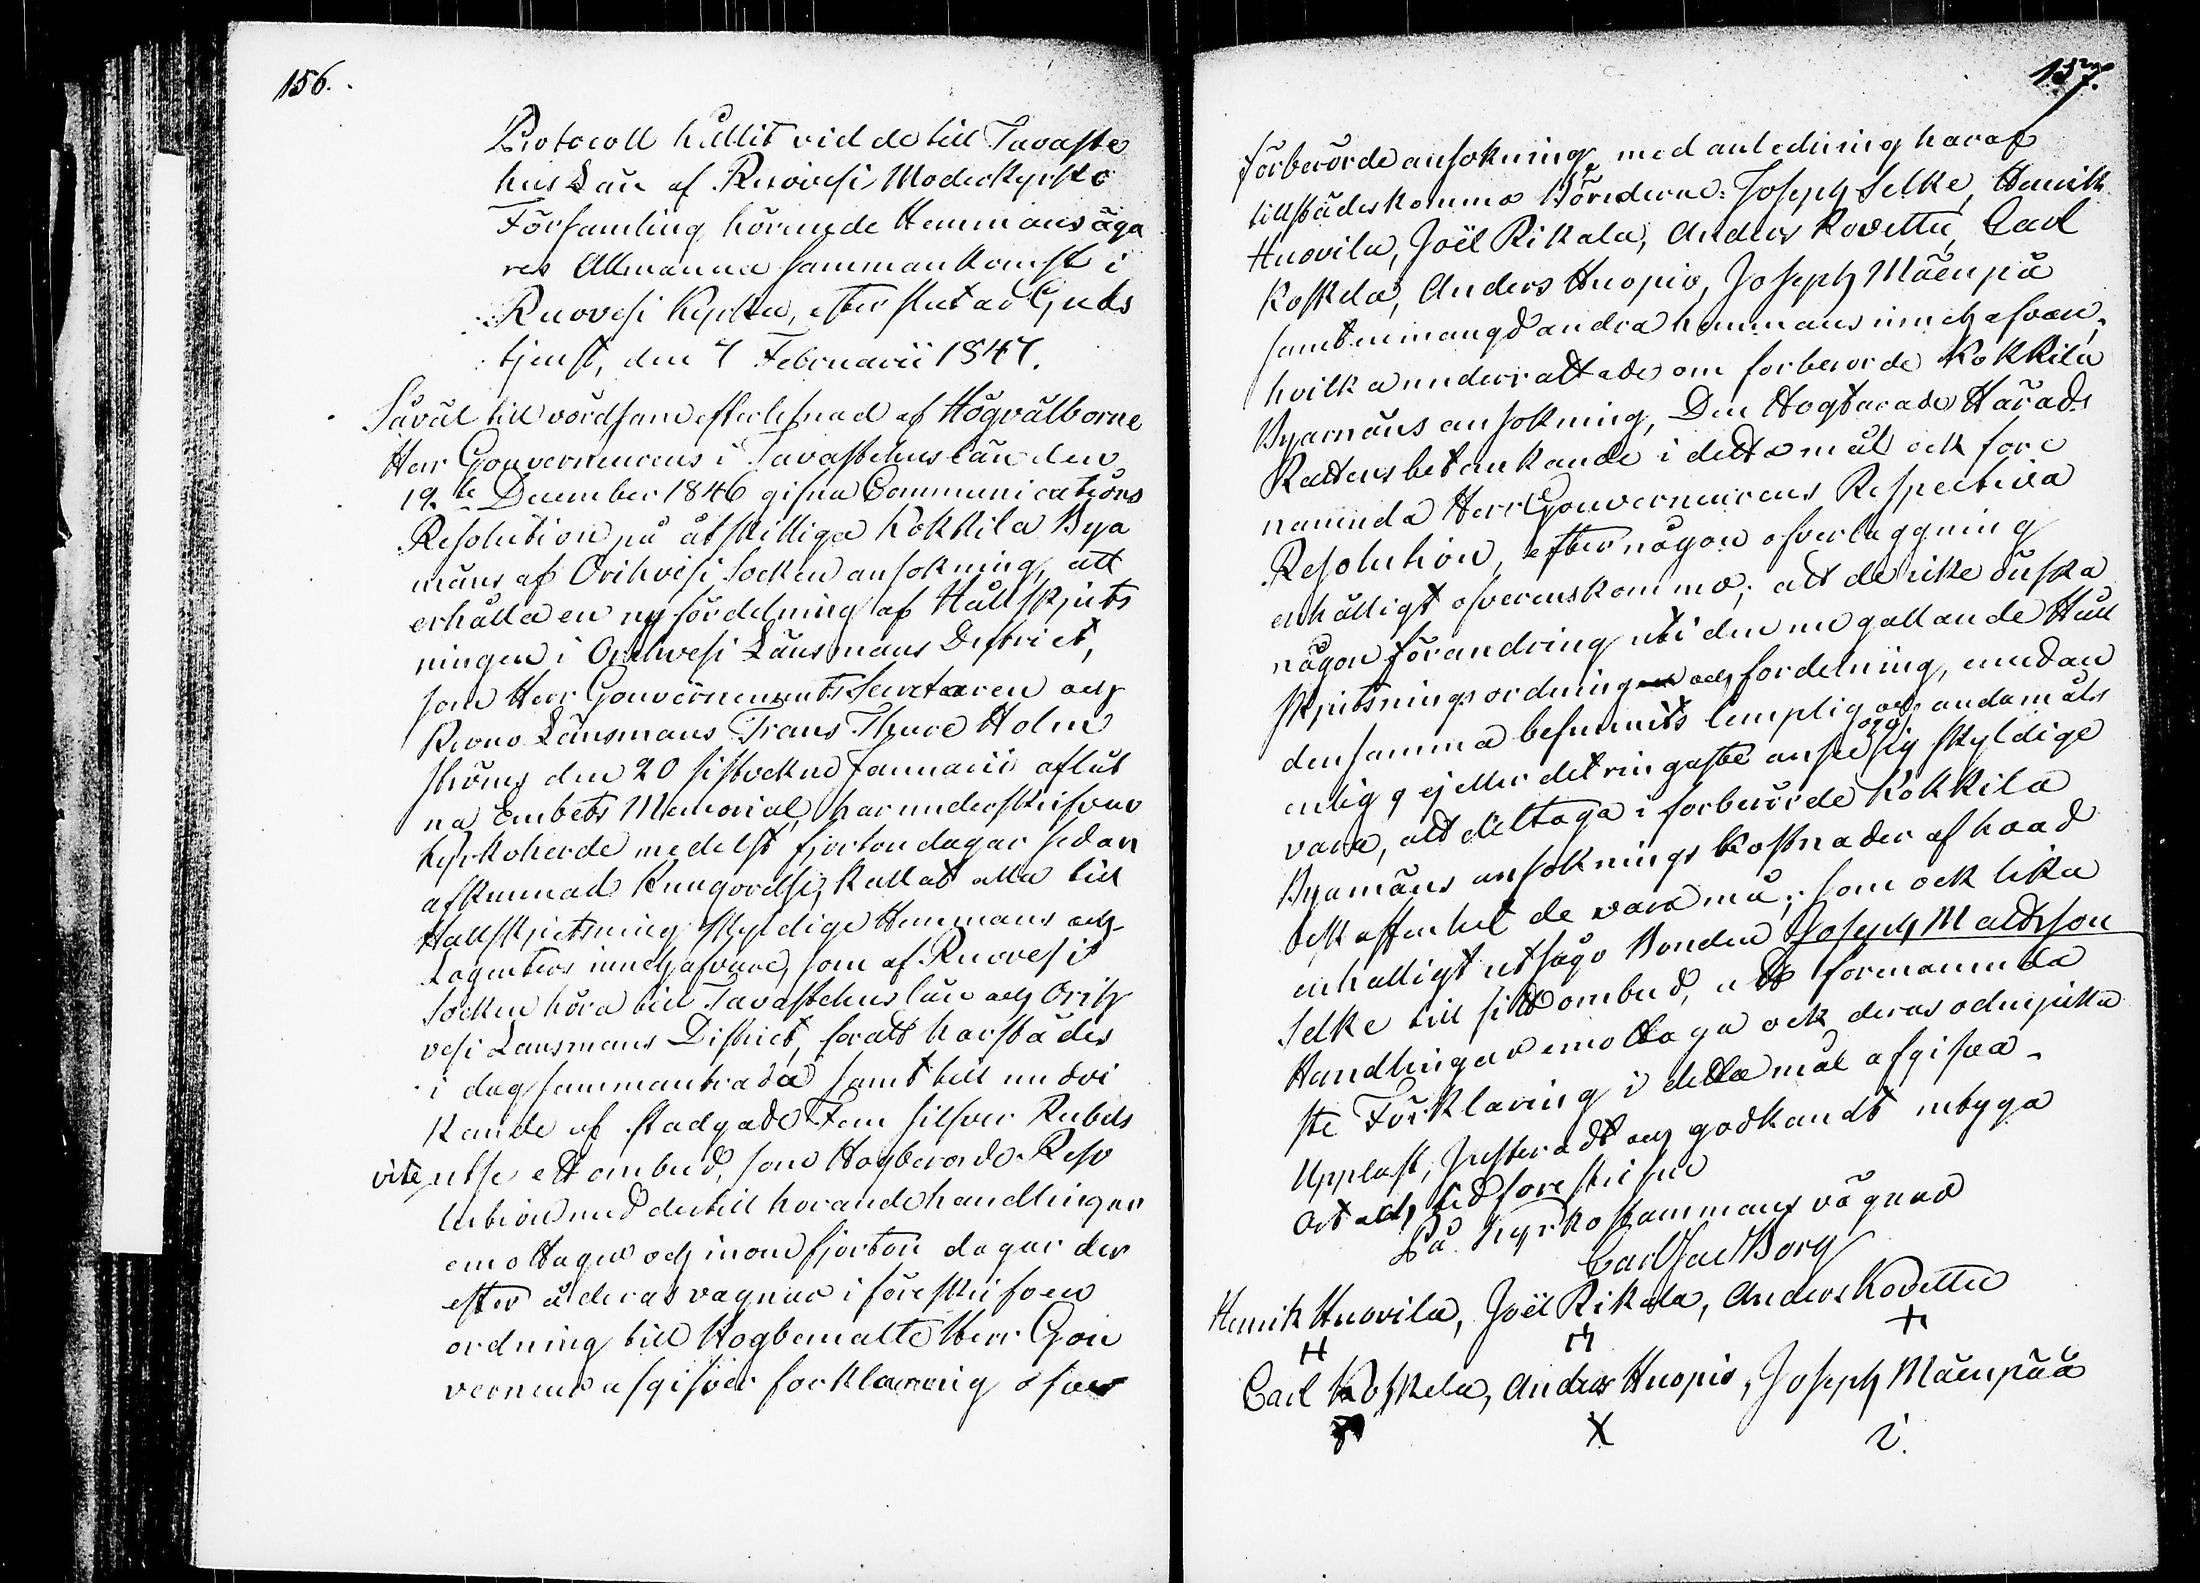 156.
Protocoll hållit vid de till Tavaste
hus Län af Ruovesi Moderkyrko
Församling hörande Hemmansäga
res Allmänna sammankomst i
Ruovesi Kyrka, efter slutad Guds
tjenst, den 7 Februarii 1847.
Såväl till vördsam efterlefnad af Högvälborne
Herr Gouverneurens i Tavastehus län den
19.de December 1846 gifna Communications
Resolution på åtskilliga Kokkila Bya
mäns af Orihvesi Socken ansökning, att
erhålla en ny fördelning af Hållskjuts
ningen i Orihvesi Länsmans District,
som Herr Gouvernements Secretaren och
Krono Länsmans Frans Thure Holm
ströms den 20 sistvekne Januarii aflåt
na Embets Memorial, har underskrifven
Kyrkoherde medelst fjorton dagar sedan
afkunnad Kungörelse, kallat alla till
Hållskjutsning skyldige Hemmans och
Lägenters innehafvare, som af Ruovesi
Socken höra till Tavastehus län och Orih
vesi Länsmans District, för att härstädes
i dag sammanträda samt till undvi
kande af stadgade Fem silfver Rubels
vite utse ett ombud, som Högberörde Reso
lution med dertill hörande handlingar
emottager och inom fjorton dagar der
efter å deras vägnar i föreskrifven
ordning till Högbemälte Herr Gou
verneur afgifver förklaring öfver
157.
förberörde ansökning, med anledning häraf
tillstädeskommo Bönderne: Joseph Selke, Henrik
Huovila, Joël Rikala, Anders Kovettu, Carl
Koskela, Anders Huopio, Joseph Mäenpä
samt en mängd andra hemmans innehafvare,
hvilka underrättade om förberörde Kokkila
Byamäns ansökning, Den Högtärade Härads
Rättens betänkande i detta mål och före
nämnda Herr Gouverneurens Respectiva
Resolution, efter någon öfverläggning
enhälligt öfverenskommo; att de icke önska
någon förändring uti den nu gällande Håll
skjutsnings ordning och fördelning, emedan
densamma befunnits lämplig och ändamåls
enlig, ej eller det ringaste anse sig skyldige
vara, att deltaga i förberörde Kokkila
Byamäns ansöknings kostnader af hvad
beskaffenhet de vara må; som ock lika
enhälligt utsågo Bonden Joseph Mattsson
Selke till sitt ombud, att förenämnda
Handlingar emottaga och deras ödmjuka
ste Förklaring i detta mål afgifva.
Uppläst, Justeradt och godkändt intyga
Ort och tid föreskrifne
På Kyrkostämmans vägnar
Carl Borg
Henrik Huovila, Joël Rikala, Anders Kovettu
Carl Koskela, Anders Huopio, Joseph Mäenpää